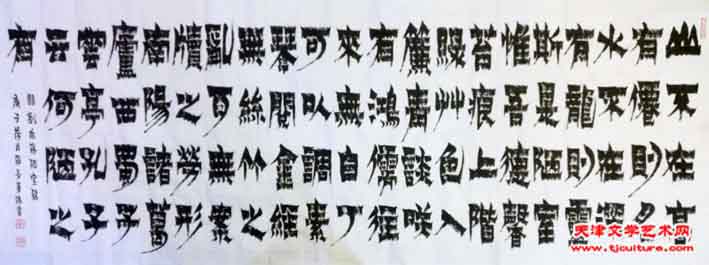 山不在高
有僊則名
水不在深
有龍則靈
斯是陋室
惟吾德馨
苔痕上階
綠艸色入
簾青談咲
有鴻儒往
來無白丁
可以調素
琴閱金經
無絲竹之
亂耳無案
牘之勞形
南陽諸葛
廬西蜀子
雲亭孔子
云何陋之
有
劉禹錫陋室銘
庚子
天津文学艺术网
www.tjculture.com